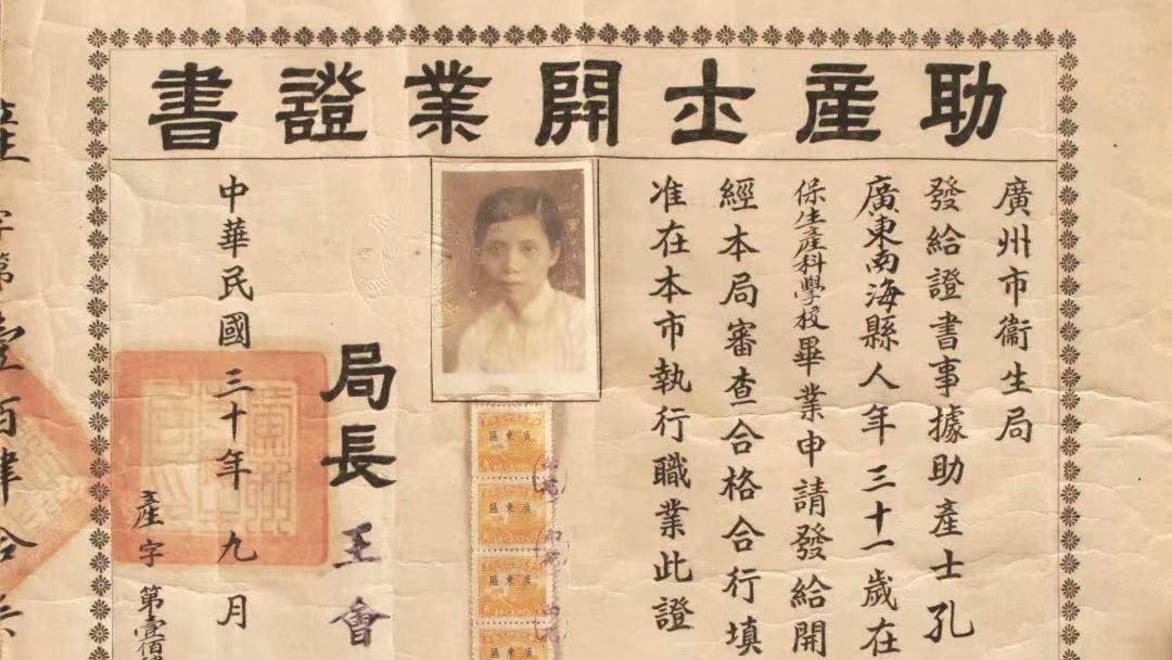 助產士開業證書
廣州市衞生局
發給證書事據助產士孔
廣東南海縣人年三十一歲在
保生產科學校畢業申請發給開
經本局審查合格合行填
准在本市執行職業此證
局長王會
中華民國三十年九月
產字第壹佰
字第壹百肆拾
廣東區
廣東區
廣東區
廣東區